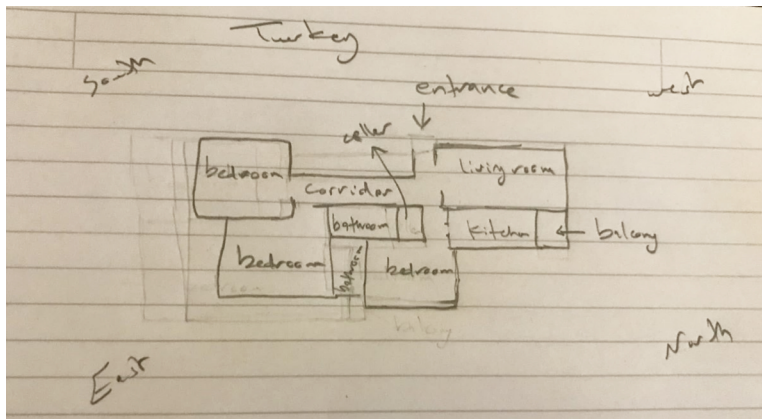 Turkey
South
west
entrance
celler
bedroom
living room
corridor
bathroom
kitchen
balcony
bedroom
bathroom
bedroom
balcony
North
East